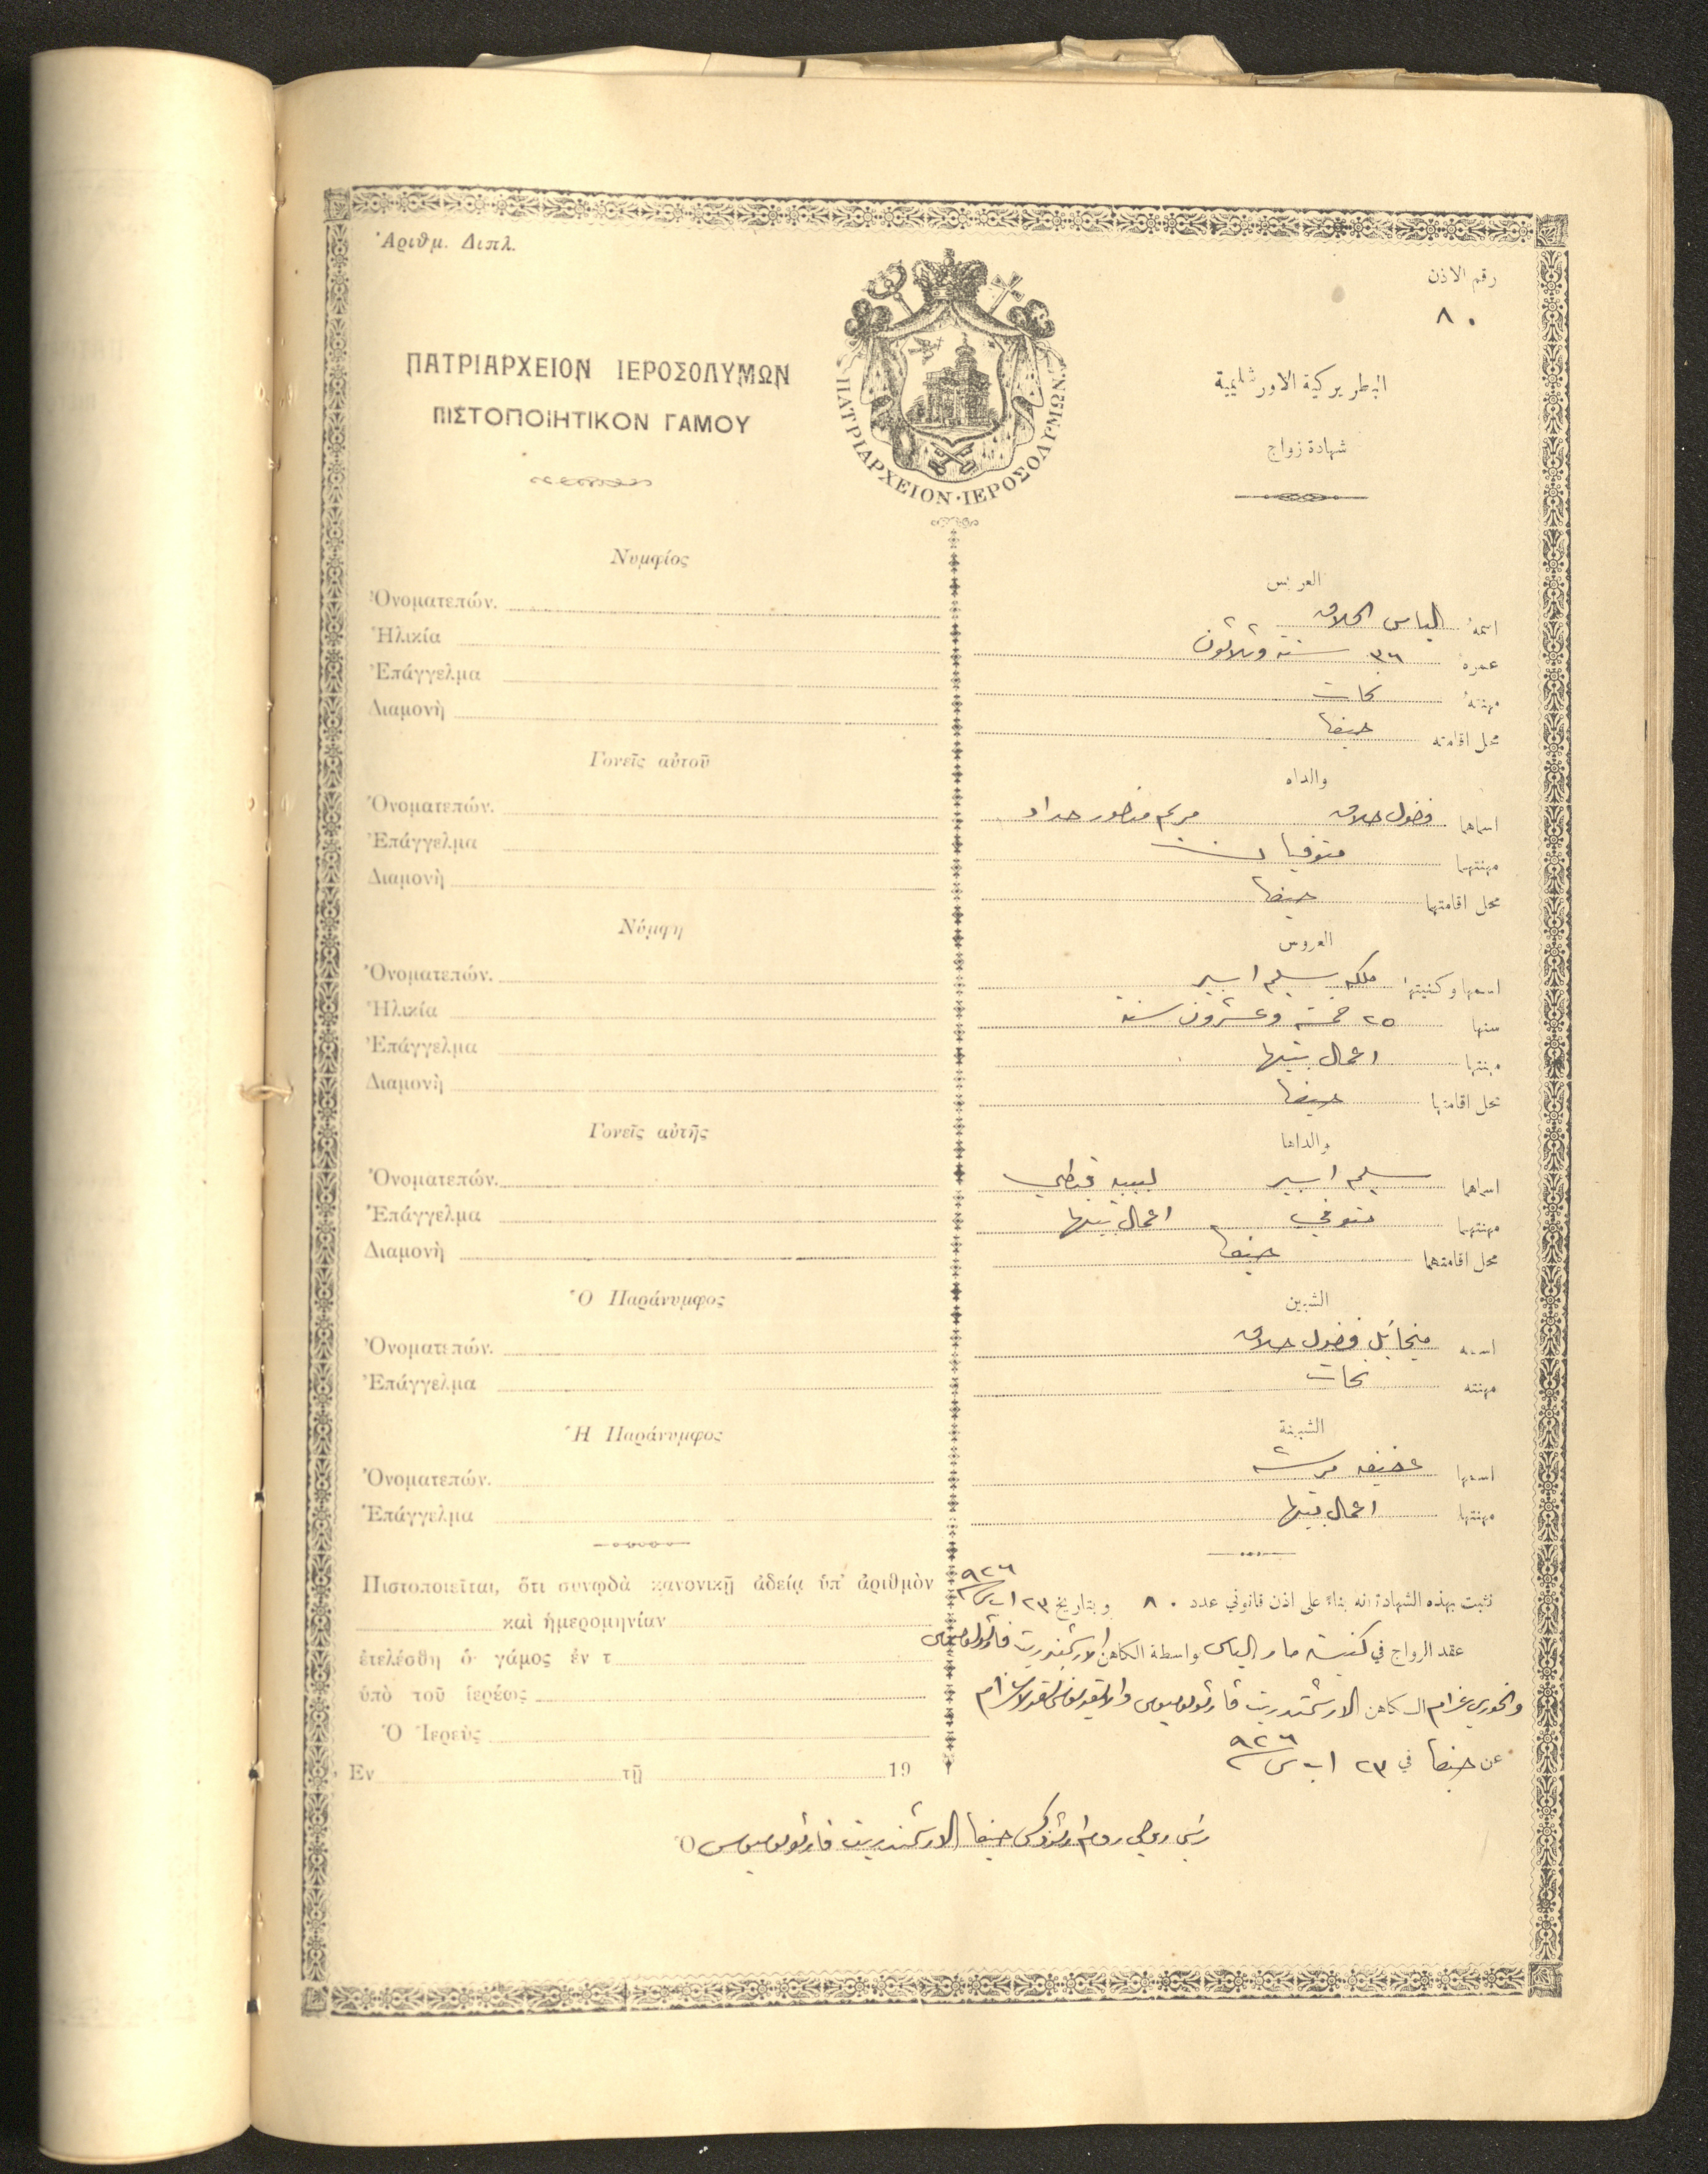 Ἀριθμ. Διπλ.
رقم الاذن
٨٠
ΠΑΤΡΙΑΡΧΕΙΟΝ ΙΕΡΟΣΟΛΥΜΩΝ
ΠΙΣΤΟΠΟΙΗΤΙΚΟΝ ΓΑΜΟΥ
ΠΑΤΡΙΑΡΧΕΙΟΝ·ΙΕΡΟΣΟΛΥΜΩΝ.
البطريركية الاورشليمية
شهادة زواج
Νυμφίος
Ὀνοματεπών.
Ἡλικία
Ἐπάγγελμα
Διαμονὴ
Γονεῖς αὐτοῦ
Ὀνοματεπών.
Ἐπάγγελμα
Διαμονὴ
Νύμφη
Ὀνοματεπών.
Ἡλικία
Ἐπάγγελμα
Διαμονὴ
Γονεῖς αὐτῆς
Ὀνοματεπών.
Ἐπάγγελμα
Διαμονὴ
Ὁ Παράνυμφος
Ὀνοματεπών.
Ἐπάγγελμα
Ἡ Παράνυμφος
Ὀνοματεπών.
Ἐπάγγελμα
Πιστοποιεῖται, ὅτι συνῳδὰ κανονικῇ ἀδείᾳ ὑπ' ἀριθμὸν
καὶ ἡμερομηνίαν
ἐτελέσθη ὁ γάμος ἐν τ
ὑπὸ τοῦ ἱερέως
Ὁ Ἱερεὺς
Ἐν τῇ 19
العريس
اسمهُ الياس الحلاق
عمره ٣٦ ستة وثلاثون
مهنتهُ نحات
محل اقامته حيفا
والداه
اسماهما فضول حلاق مريم منصور حداد
مهنتهما متوفيان
محل اقامتهما حيفا
العروس
اسمها وكنيتها ملكه سليم اسبير
سنها ٢٥ خمسة وعشرون سنة
مهنتها اعمال بيتها
محل اقامتها حيفا
والداها
اسماهما سليم اسبير لبيبه قبطي
مهنتهما متوفي اعمال بيتها
محل اقامتهما حيفا
الشبين
اسمه ميخائيل فضول حلاق
مهنته نحات
الشبينة
اسمها عفيفه
مهنتها اعمال بيتها
نثبت بهذه الشهادة انه بناءً على اذن قانوني عدد ٨٠ وبتاريخ ٢٣ اب س ٩٢٦
عقد الزواج في كنيسة مار الياس بواسطة الكاهن الارشمندريت
والخوري الكاهن الارشمندريت
عن حيفا في ٢٣ اب س ٩٢٦
رئيس روحي روم ارثوذكس حيفا الارشمندريت
Ὁ